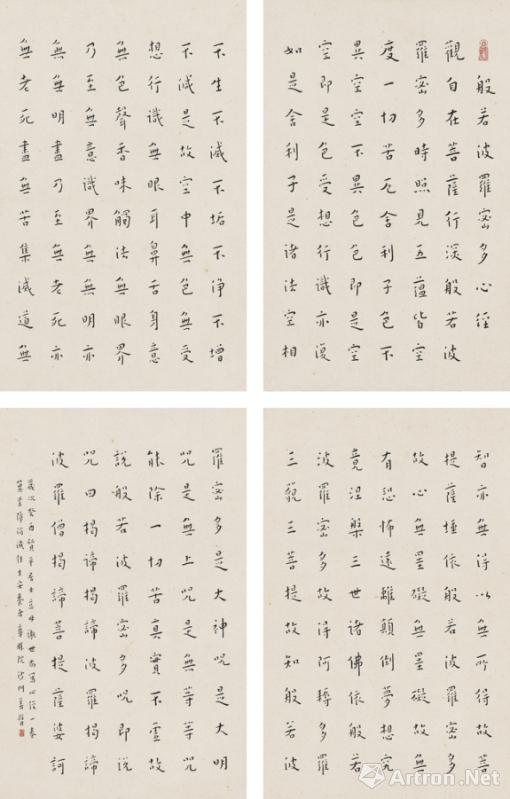 般若波羅密多心經
觀自在菩薩行深般若波
羅密多時照見五蘊皆空
度一切苦厄舍利子色不
異空空不異色色即是空
空即是色受想行識亦復
如是舍利子是諸法空相
不生不滅不垢不淨不增
不減是故空中無色無受
想行識無眼耳鼻舌身意
無色聲香味觸法無眼界
乃至無意識界無無明亦
無無明盡乃至無老死亦
無老死盡無苦集滅道無
智亦無得以無所得故菩
提薩埵依般若波羅密多
故心無罣礙無罣礙故無
有恐怖遠離顛倒夢想究
竟涅槃三世諸佛依般若
波羅密多故得阿耨多羅
三藐三菩提故知般若波
羅密多是大神咒是大明
咒是無上咒是無等等咒
能除一切苦真實不虛故
說般若波羅密多咒即說
咒曰揭諦揭諦波羅揭諦
波羅僧揭諦菩提薩婆訶
歲次癸酉居士謝世寫心經一卷
Artron.Net